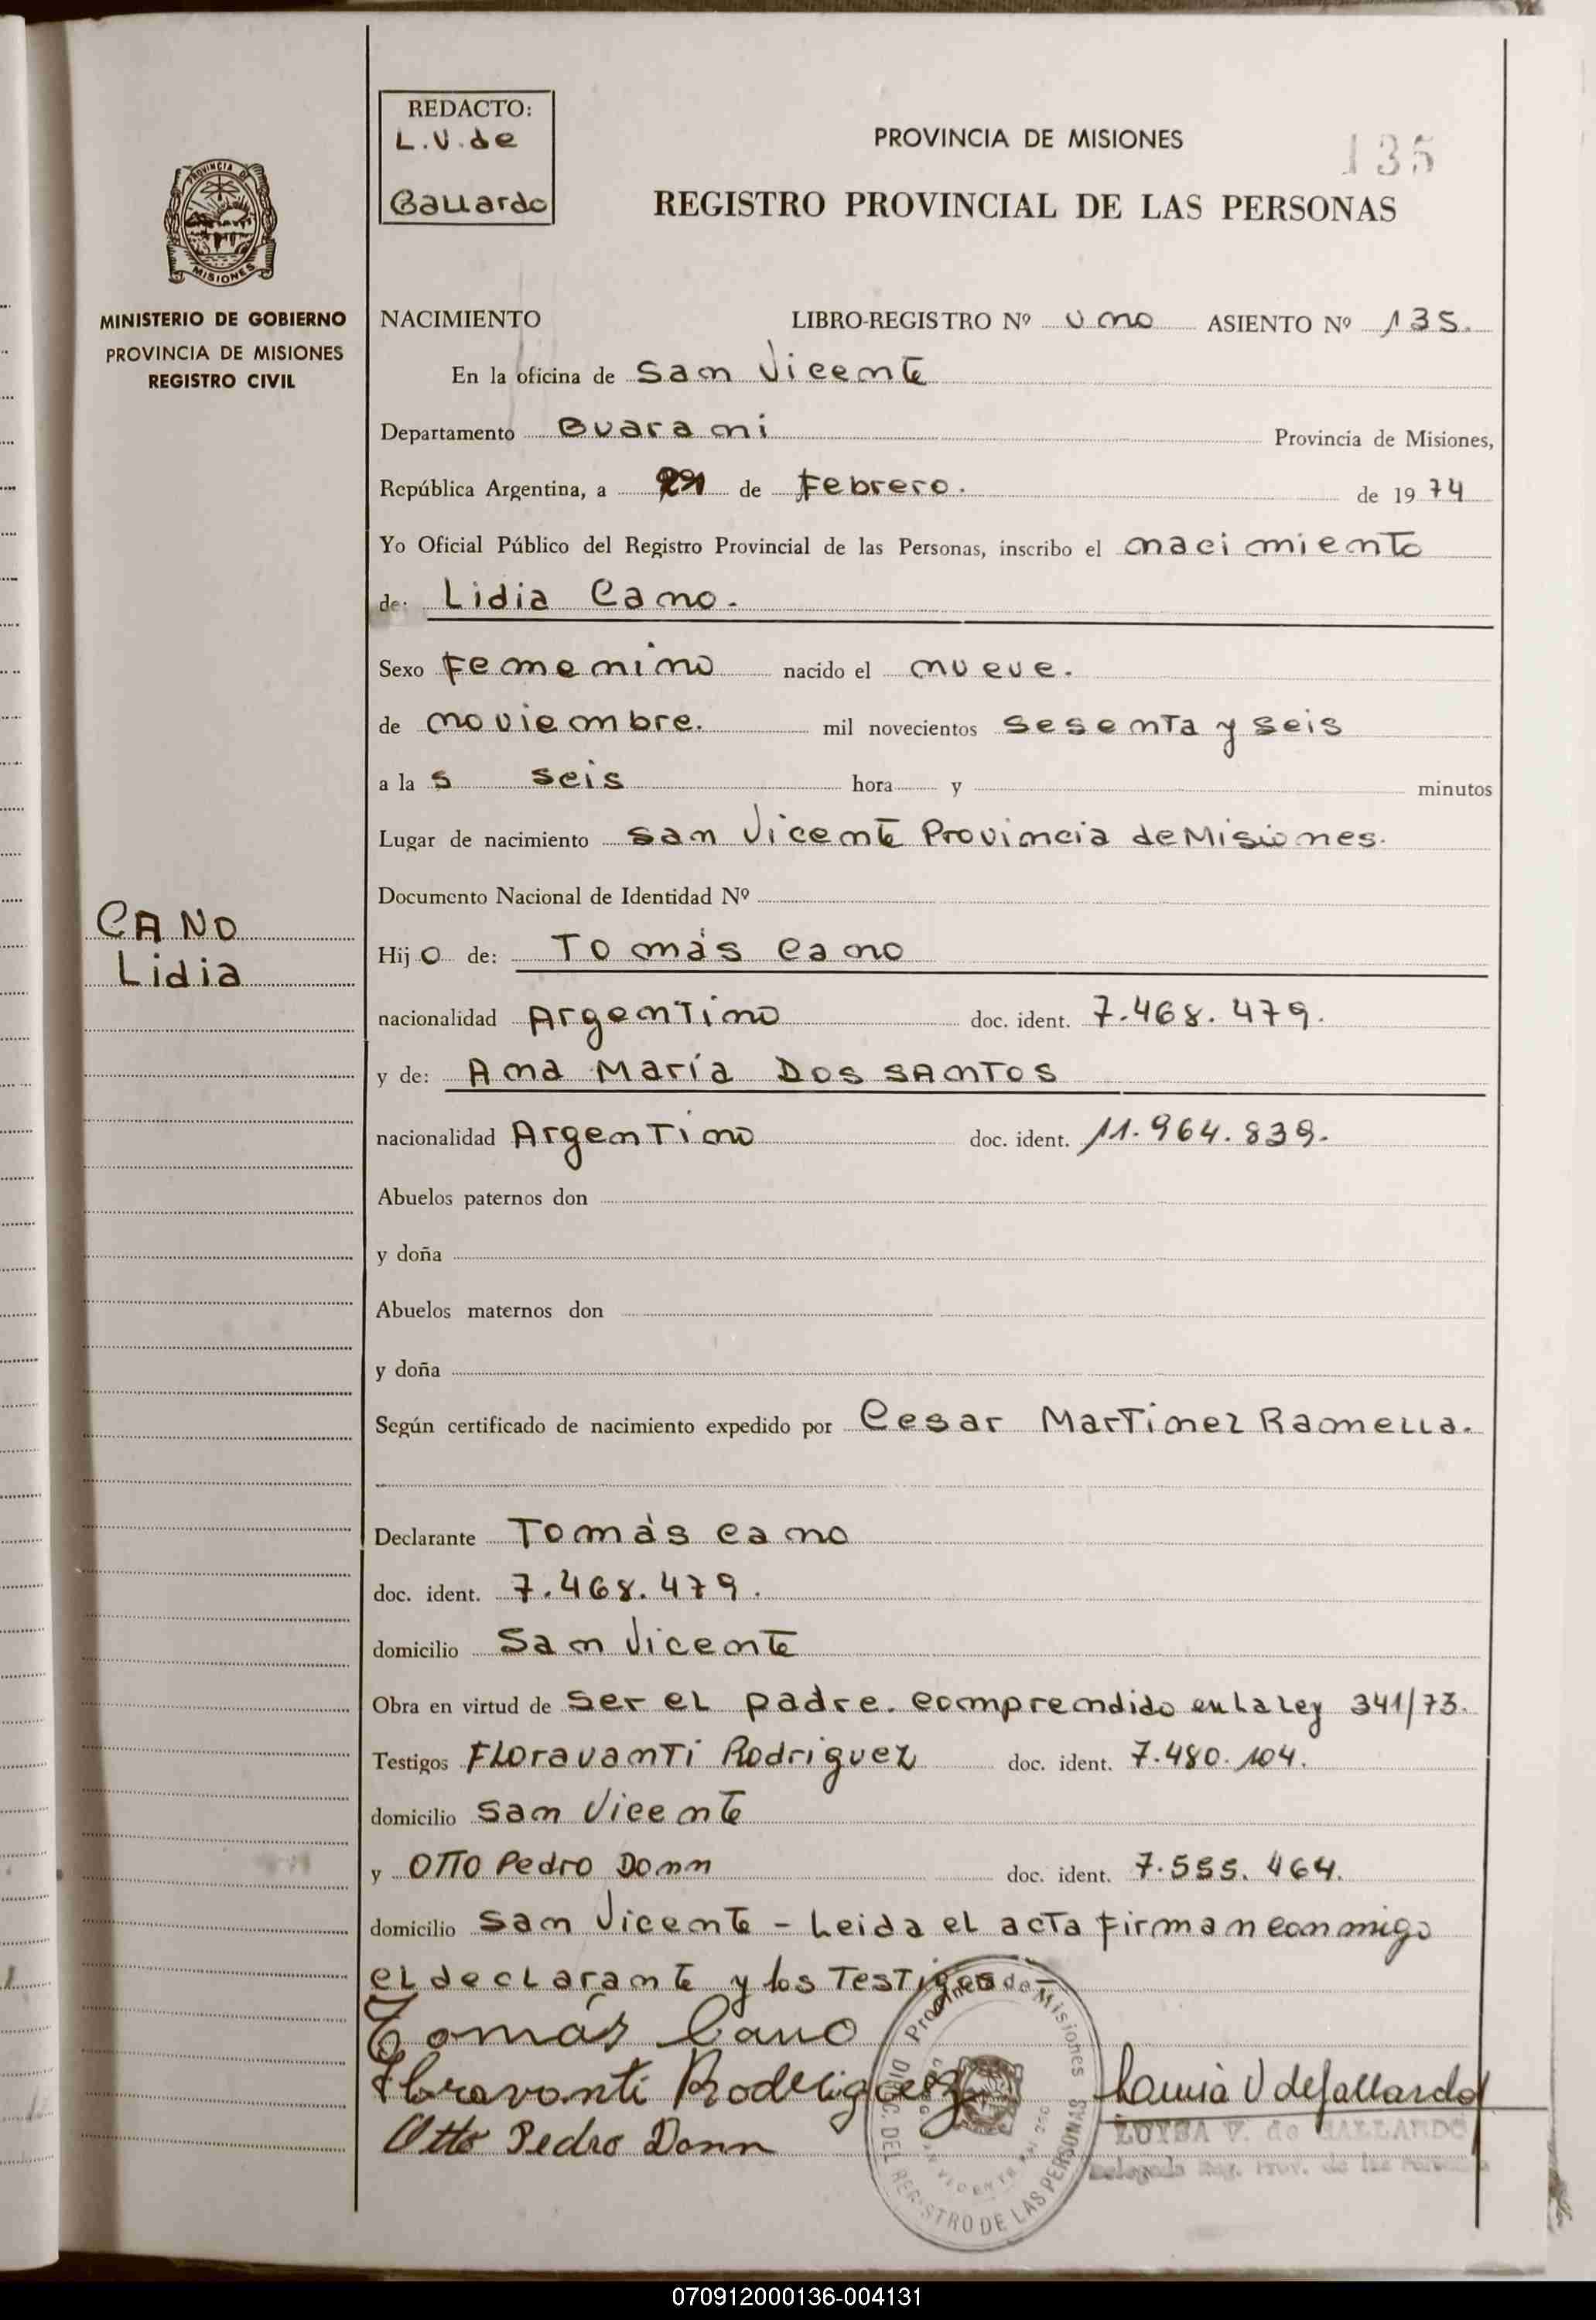 REDACTO:
L.V. de
Gallardo
PROVINCIA DE MISIONES
135
REGISTRO PROVINCIAL DE LAS PERSONAS
PROVINCIA DE
MISIONES
MINISTERIO DE GOBIERNO
PROVINCIA DE MISIONES
REGISTRO CIVIL
NACIMIENTO LIBRO-REGISTRO Nº uno ASIENTO Nº 135.
En la oficina de San Vicente
Departamento Guarani Provincia de Misiones,
República Argentina, a de Febrero. de 1974
Yo Oficial Público del Registro Provincial de las Personas, inscribo el nacimiento
de: Lidia Cano.
Sexo Femenino nacido el nueve.
de noviembre. mil novecientos sesenta y seis
a las seis hora y minutos
Lugar de nacimiento San Vicente Provincia de Misiones.
Documento Nacional de Identidad Nº
CANO
Lidia
Hijo de: Tomás Cano
nacionalidad Argentino doc. ident. 7.468.479.
y de: Ana María Dos Santos
nacionalidad Argentino doc. ident. 11.964.839.
Abuelos paternos don
y doña
Abuelos maternos don
y doña
Según certificado de nacimiento expedido por Cesar Martinez Ramella.
Declarante Tomás Cano
doc. ident. 7.468.479.
domicilio San Vicente
Obra en virtud de ser el padre. comprendido en la Ley 341/73.
Testigos Floravanti Rodriguez doc. ident. 7.480.104.
domicilio San Vicente
y Otto Pedro Donn doc. ident. 7.555.464.
domicilio San Vicente - Leida el acta firman conmigo
el declarante y los Testigos
Tomás Cano
Floravonti Rodriguez
Otto Pedro Donn
Provincia de Misiones
DIREC. DEL REGISTRO DE LAS PERSONAS
SAN VICENTE
V de Gallardo
LUISA V. de GALLARDO
Delegada Reg. Prov. de las Personas
070912000136-004131